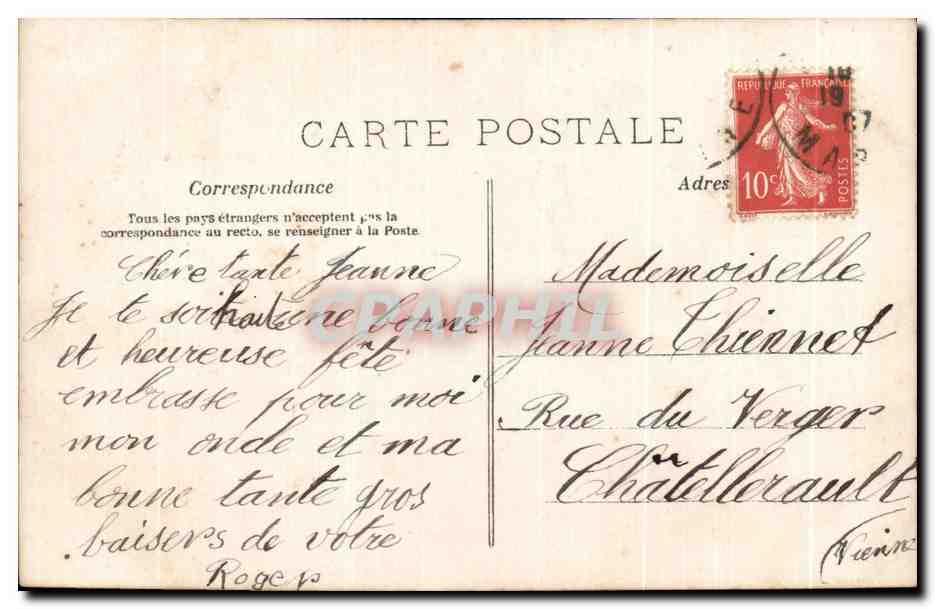 CARTE POSTALE
Correspondance
Tous les pays étrangers n'acceptent pas la
correspondance au recto, se renseigner à la Poste.
Chére tante Jeanne
Je te soithaite une bonne
et heureuse fête
embrasse pour moi
mon oncle et ma
bonne tante gros
baisers de votre
Roger
Adres
REPUBLIQUE FRANÇAISE
10c
POSTES
18
19
07
MAR
Mademoiselle
Jeanne Thiennet
Rue du Verger
Châtellerault
(Vienne
CRAPHIL